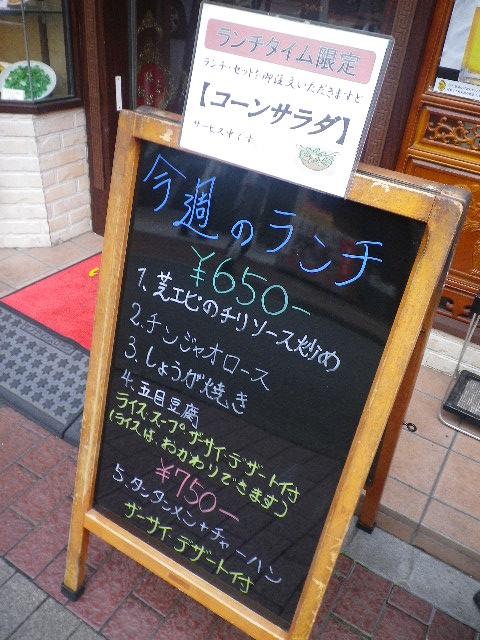 ランチタイム限定
ランチ・セットを御注文いただきますと
【コーンサラダ】
サービス中です
今週のランチ
¥650-
1. 芝エビのチリソース炒め
2. チンジャオロース
3. しょうが焼き
4. 五目豆腐
ライス、スープ ザーサイ・デザート付
(ライスは、おかわりできます)
¥750-
5. タンタンメン+チャーハン
ザーサイ・デザート付